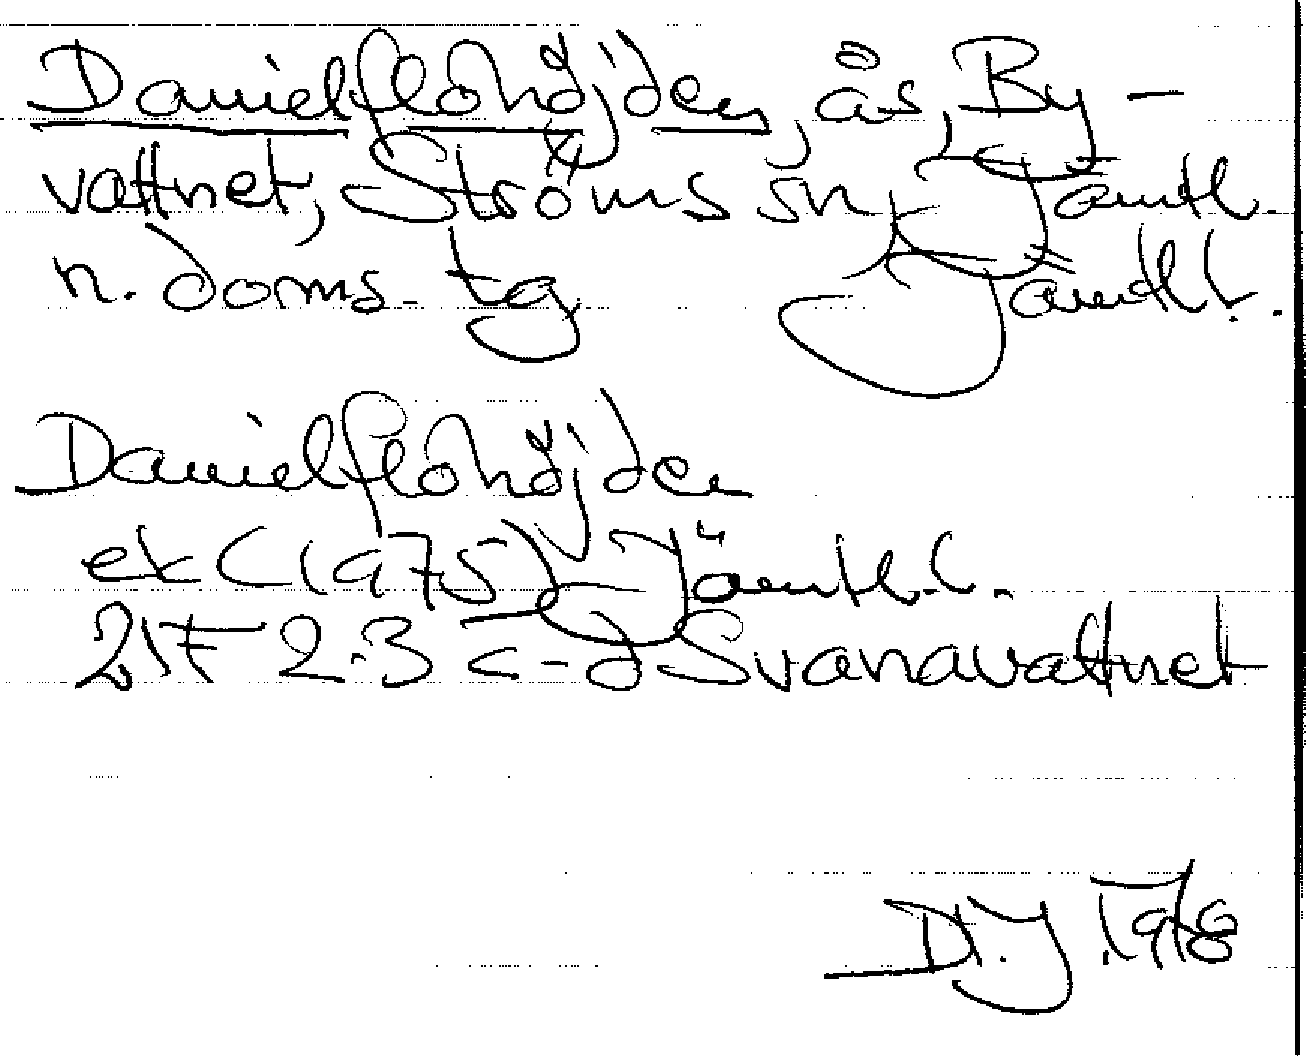 Danielflohöjden, ås, By-
vattnet, Ströms sn, Jämtl.
n. doms. tg Jämtl l.
Danielflohöjden
ek C (1975) Jämtl. l.
21F 2-3 c-d Svanavattnet